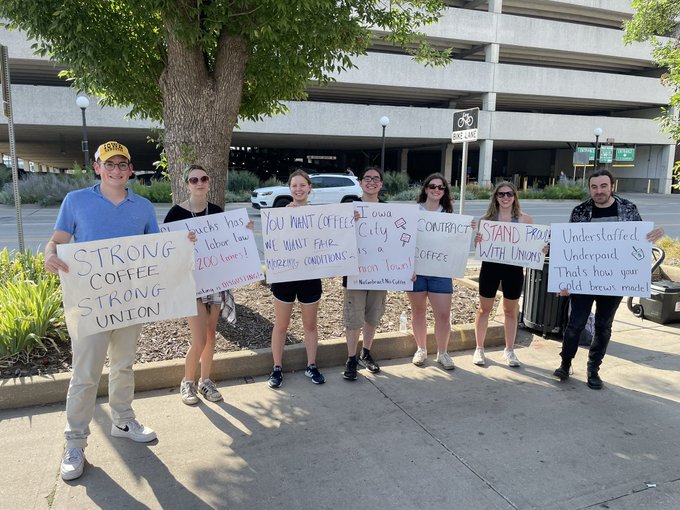 IOWA
STRONG
COFFEE
STRONG
UNION
bucks has
labor law
200 times!
is DISGUSTING
YOU WANT COFFEE
WE WANT FAIR
WORKING CONDITIONS
Iowa
City
is a
union town!
#NoContract No Coffee
CONTRACT
COFFEE
STAND PROUD
WITH UNIONS
Understaffed
Underpaid
That's how your
Cold brews made!
BIKE LANE